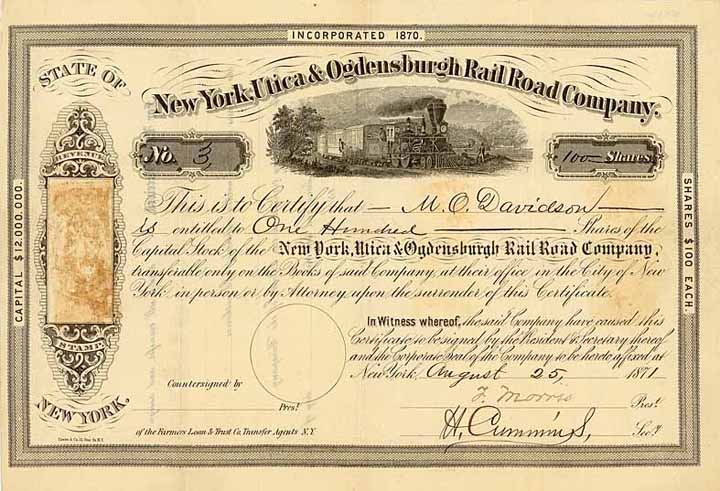 INCORPORATED 1870.
STATE OF
New York, Utica & Ogdensburgh Rail Road Company.
REVENUE
No. 3
100 Shares
This is to Certify that M. O. Davidson
is entitled to One Hundred Shares of the
Capital Stock of the New York, Utica & Ogdensburgh Rail Road Company,
transferable only on the Books of said Company, at their office in the City of New
York in person or by Attorney, upon the surrender of this Certificate.
CAPITAL $12,000,000.
SHARES $100 EACH.
In Witness whereof, the said Company have caused this
Certificate to be signed by the President & Secretary thereof
and the Corporate Seal of the Company to be hereto affixed at
New York, August 25, 1871
STAMP
Countersigned by
Pres.t
F. Morris Pres.t
NEW YORK.
of the Farmers Loan & Trust Co. Transfer Agents N.Y.
H. Cummings, Sec.y